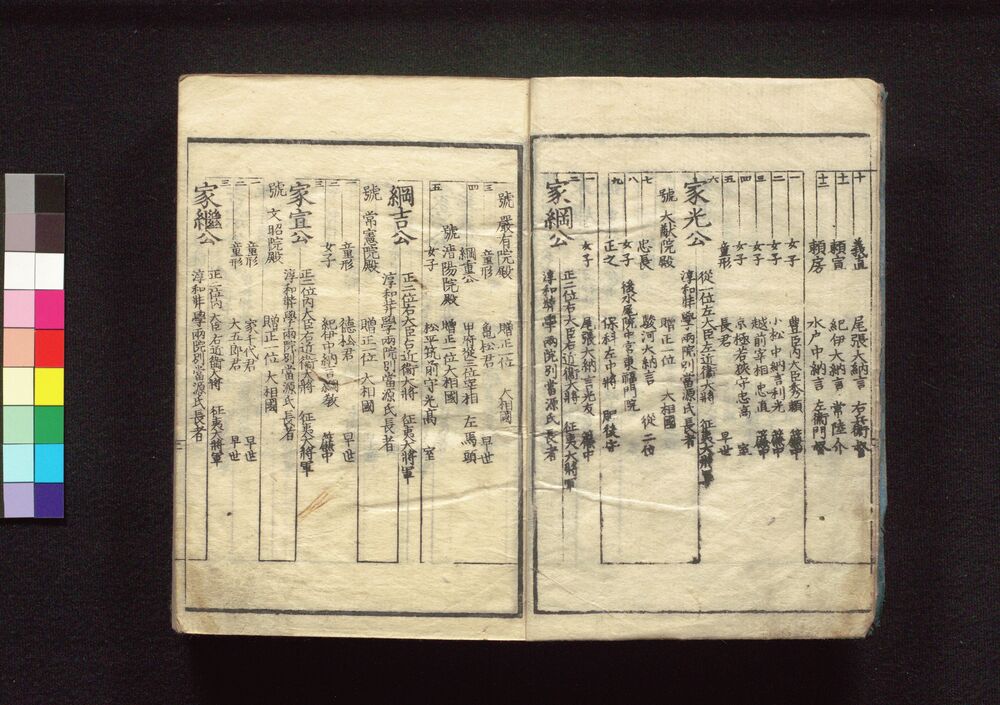 十 義直 尾張大納言 右兵衛督
十一 頼宣 紀伊大納言 常陸介
十二 頼房 水戸中納言 左衛門督
一 女子 豊臣内大臣秀頼 簾中
二 女子 小松中納言利光 簾中
三 女子 越前宰相忠直 簾中
四 女子 京極若狭守忠高 室
五 童形 長君 早世
六 家光公 從一位左大臣左近衛大將 征夷大將軍
淳和奘學兩院別當源氏長者
號 大猷院殿 贈正一位 大相國
七 忠長 駿河大納言 從二位
八 女子 後水尾院中宮東福門院
九 正之 保科左中將 肥後守
一 女子 尾張大納言光友 簾中
二 家綱公 正二位右大臣右近衛大將 征夷大將軍
淳和奘學兩院別當源氏長者
號 嚴有院殿 贈正一位 大相國
三 童形 亀松君 早世
四 綱重公 甲府從三位宰相 左馬頭
號 清陽院殿 贈正一位大相國
五 女子 松平筑前守光高 室
綱吉公 正二位右大臣右近衛大將 征夷大將軍
淳和奘學兩院別當源氏長者
號 常憲院殿 贈正一位 大相國
一 童形 德松君 早世
二 女子 紀伊中納言綱教 簾中
三 家宣公 正二位内大臣右近衛大將 征夷大將軍
淳和奘學兩院別當源氏長者
號 文昭院殿 贈正一位 大相國
一 童形 家千代君 早世
二 童形 大五郎君 早世
三 家繼公 正二位内大臣右近衛大將 征夷大將軍
淳和奘學兩院別當源氏長者